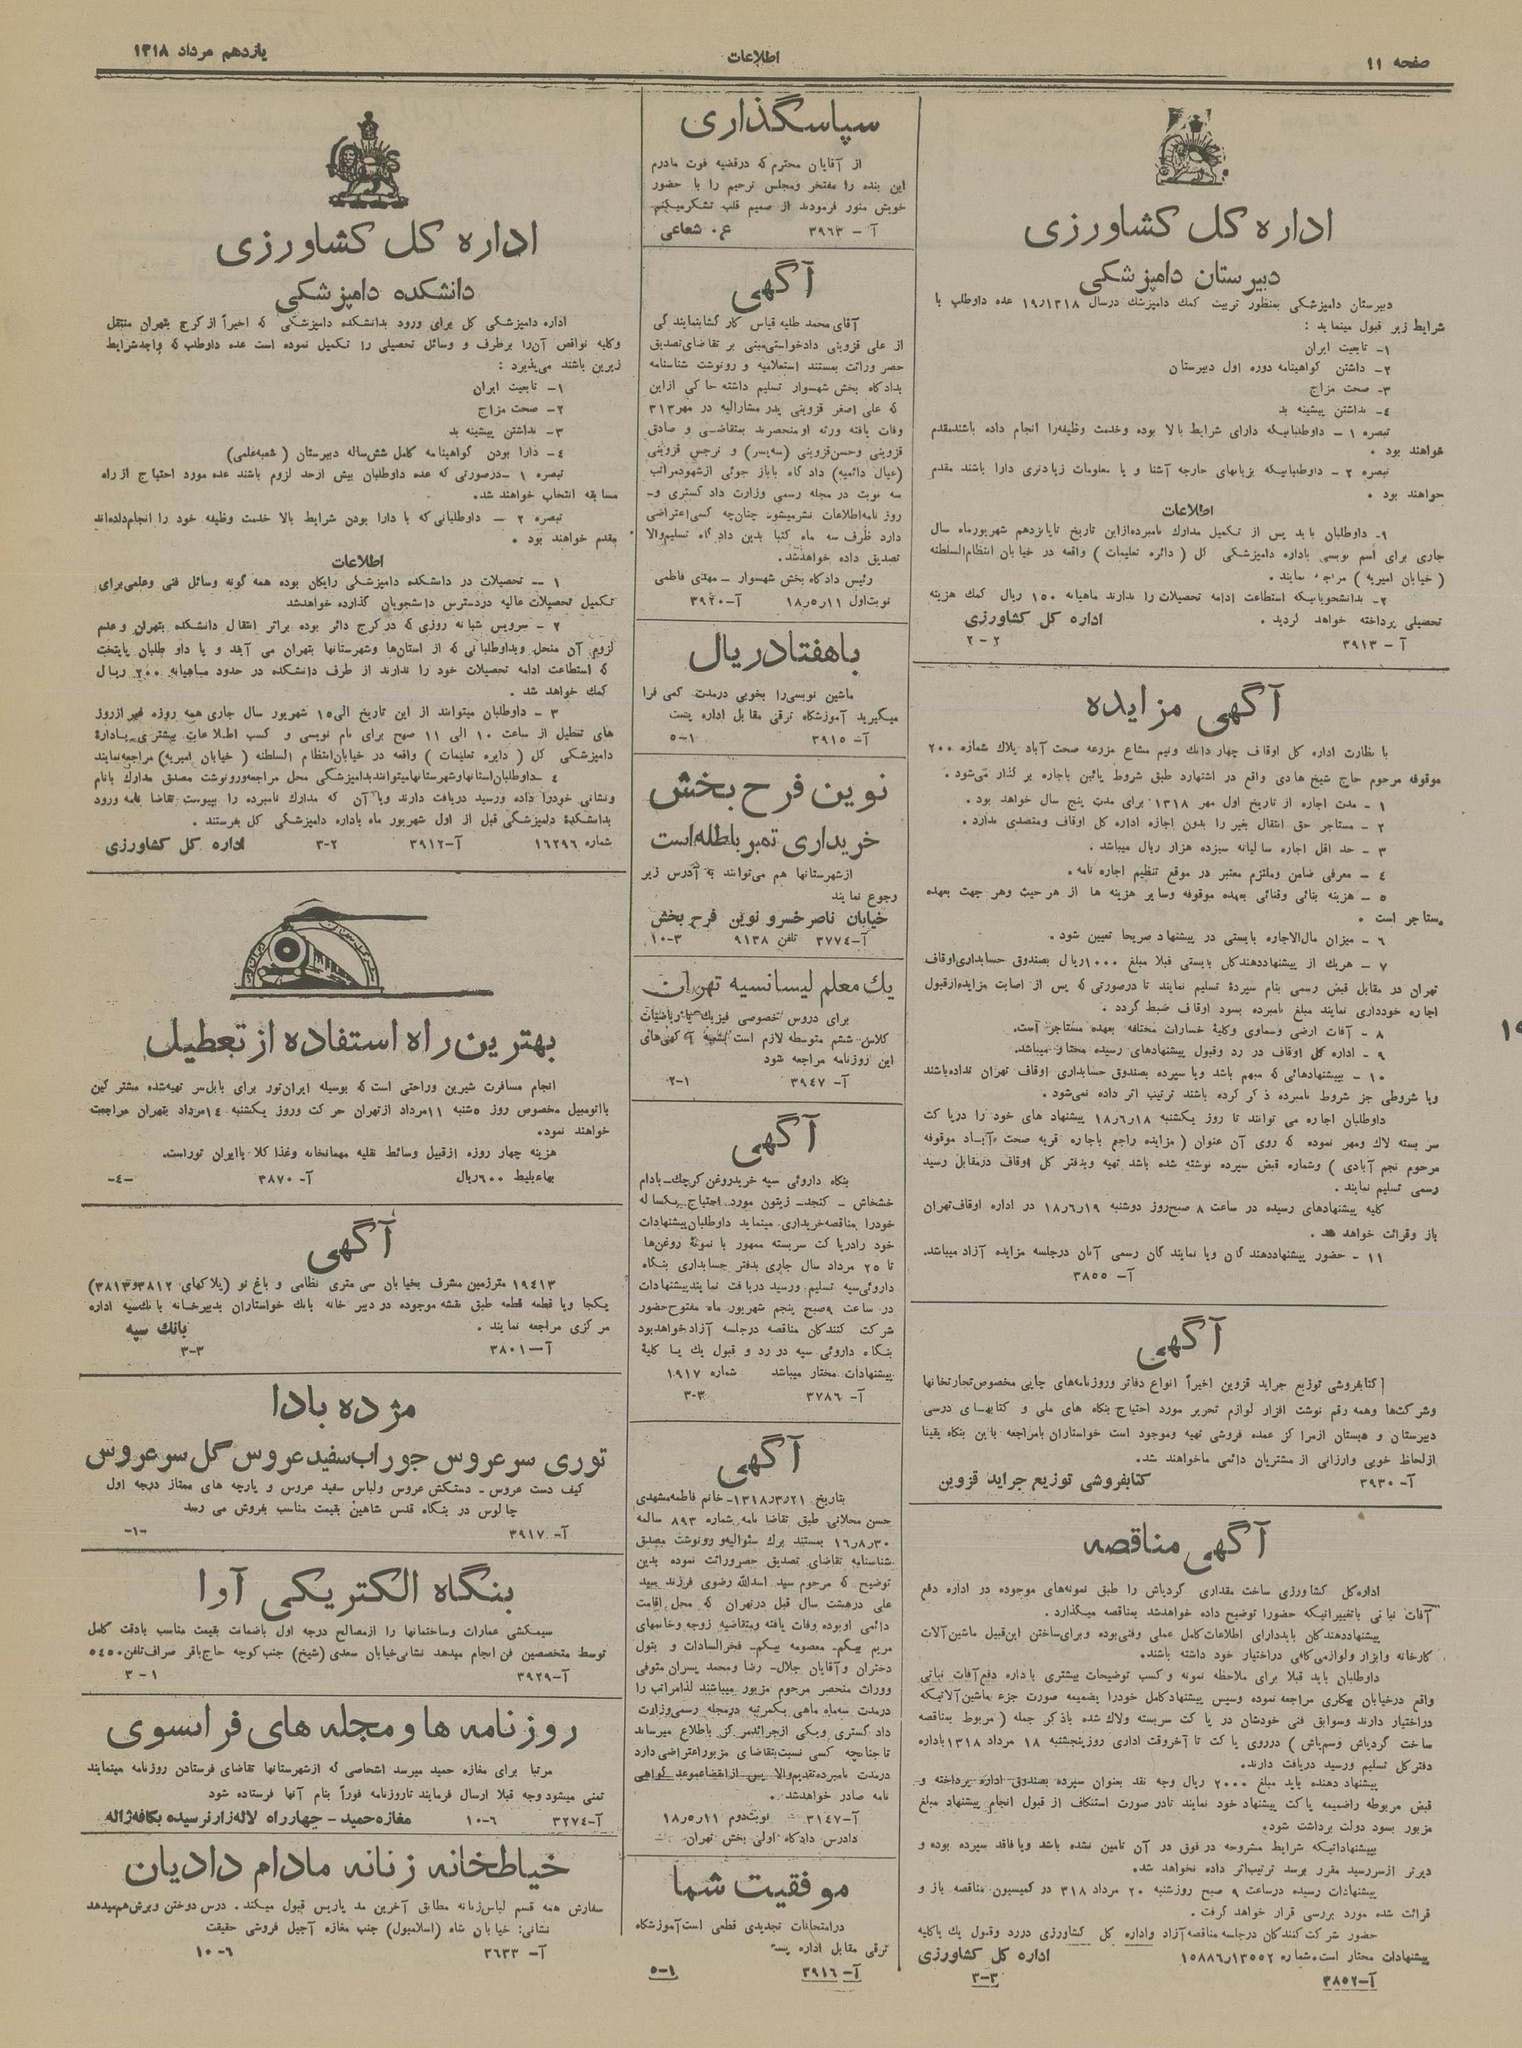 صفحه ۱۱
اطلاعات
یازدهم مرداد ۱۳۱۸
اداره کل کشاورزی
دبیرستان دامپزشکی
دبیرستان دامپزشکی بمنظور تربیت کمک دامپزشک درسال ۱۹ر۱۳۱۸ عده داوطلب با
شرایط زیر قبول مینماید :
۱- تابعیت ایران
۲- داشتن گواهینامه دوره اول دبیرستان
۳- صحت مزاج
٤- نداشتن پیشینه بد
تبصره ۱ - داوطلبانیکه دارای شرایط بالا بوده وخدمت وظیفه‌را انجام داده باشندمقدم
خواهند بود .
تبصره ۲ - داوطلبانیکه بزبانهای خارجه آشنا و یا معلومات زیادتری دارا باشند مقدم
خواهند بود .
اطلاعات
۱- داوطلبان باید پس از تکمیل مدارک نامبرده‌ازاین تاریخ تاپانزدهم شهریورماه سال
جاری برای اسم نویسی باداره دامپزشکی کل ( دائره تعلیمات ) واقعه در خیابان انتظام‌السلطنه
( خیابان امیریه ) مراجعه نمایند .
۲- بدانشجویانیکه استطاعت ادامه تحصیلات را ندارند ماهیانه ۱۵۰ ریال کمک هزینه
تحصیلی پرداخته خواهد گردید . اداره کل کشاورزی
آ - ۳۹۱۳ ۲ - ۲
آگهی مزایده
با نظارت اداره کل اوقاف چهار دانک ونیم مشاع مزرعه صحت آباد پلاک شماره ۲۰۰
موقوفه مرحوم حاج شیخ هادی واقع در اشتهارد طبق شروط پائین باجاره بر گذار می‌شود .
۱ - مدت اجاره از تاریخ اول مهر ۱۳۱۸ برای مدت پنج سال خواهد بود .
۲ - مستاجر حق انتقال بغیر را بدون اجازه اداره کل اوقاف ومتصدی ندارد .
۳ - حد اقل اجاره سالیانه سیزده هزار ریال میباشد .
٤ - معرفی ضامن وملتزم معتبر در موقع تنظیم اجاره نامه .
۵ - هزینه بنائی وقنائی بعهده موقوفه وسایر هزینه ها از هر حیث وهر جهت بعهده
مستاجر است .
۶ - میزان مال‌الاجاره بایستی در پیشنهاد صریحا تعیین شود .
۷ - هریک از پیشنهاددهندگان بایستی قبلا مبلغ ۱۰۰۰ریال بصندوق حسابداری‌اوقاف
تهران در مقابل قبض رسمی بنام سپرده تسلیم نمایند تا درصورتی که پس از اصابت مزایده‌ازقبول
اجاره خودداری نمایند مبلغ نامبرده بسود اوقاف ضبط گردد .
۸ - آفات ارضی وسماوی وکلیهٔ خسارات مختلفه بعهده مستاجر است.
۹ - اداره کل اوقاف در رد وقبول پیشنهادهای رسیده مختار میباشد.
۱۰ - پیشنهادهائی که مبهم باشد ویا سپرده بصندوق حسابداری اوقاف تهران نداده‌باشند
ویا شروطی جز شروط نامبرده ذکر کرده باشند ترتیب اثر داده نمی‌شود .
داوطلبان اجاره می توانند تا روز یکشنبه ۱۸ر۶ر۱۸ پیشنهاد های خود را درپاکت
سر بسته لاک ومهر نموده که روی آن عنوان ( مزایده راجع باجاره قریه صحت آبـاد موقوفه
مرحوم نجم آبادی ) وشماره قبض سپرده نوشته شده باشد تهیه وبدفتر کل اوقاف درمقابل رسید
رسمی تسلیم نمایند .
کلیه پیشنهادهای رسیده در ساعت ۸ صبح‌روز دوشنبه ۱۹ر۶ر۱۸ در اداره اوقاف‌تهران
باز وقرائت خواهد شد .
۱۱ - حضور پیشنهاددهندگان ویا نمایندگان رسمی آنان درجلسه مزایده آزاد میباشد.
آ- ۳۸۵۵
آگهی
کتابفروشی توزیع جراید قزوین اخیراً انواع دفاتر وروزنامه‌های چاپی مخصوص‌تجارتخانها
وشرکت‌ها وهمه رقم نوشت افزار لوازم تحریر مورد احتیاج بنگاه های ملی و کتابهـای درسی
دبیرستان و دبستان ازمراکز عمده فروشی تهیه وموجود است خواستاران بامراجعه باین بنگاه یقینا
ازلحاظ خوبی وارزانی از مشتریان دائمی ماخواهند شد.
آ- ۳۹۳۰ کتابفروشی توزیع جراید قزوین
آگهی مناقصه
اداره‌کل کشاورزی ساخت مقداری گردپاش را طبق نمونه‌های موجوده در اداره دفع
آفات نباتی باتغییراتیکه حضورا توضیح داده خواهدشد بمناقصه میگذارد .
پیشنهاددهندگان بایددارای اطلاعات‌کامل عملی وفنی‌بوده وبرای‌ساختن این‌قبیل ماشین‌آلات
کارخانه وابزار ولوازمی‌کافی دراختیار خود داشته باشند.
داوطلبان باید قبلا برای ملاحظه نمونه وکسب توضیحات بیشتری باداره دفع‌آفات نباتی
واقع درخیابان بهکاری مراجعه نموده وسپس پیشنهادکامل خودرا بضمیمه صورت جزء ماشین‌آلاتیکه
دراختیار دارند وسوابق فنی خودشان در پاکت سربسته ولاک شده باذکر جمله ( مربوط بمناقصه
ساخت گردپاش وسم‌پاش ) درروی پاکت تا آخروقت اداری روزپنجشنبه ۱۸ مرداد ۱۳۱۸باداره
دفترکل تسلیم ورسید دریافت دارند.
پیشنهاد دهنده باید مبلغ ۲۰۰۰ ریال وجه نقد بعنوان سپرده بصندوق اداره پرداخته و
قبض مربوطه راضمیمه پاکت پیشنهاد خود نمایند تادر صورت استنکاف از قبول انجام پیشنهاد مبلغ
مزبور بسود دولت برداشت شود.
پیشنهاداتیکه شرایط مشروحه در فوق در آن تامین نشده باشد ویافاقد سپرده بوده و
دیرتر ازسررسید مقرر برسد ترتیب‌اثر داده نخواهد شد.
پیشنهادات رسیده درساعت ۹ صبح روزشنبه ۲۰ مرداد ۳۱۸ در کمیسیون مناقصه باز و
قرائت شده مورد بررسی قرار خواهد گرفت .
حضور شرکت‌کنندگان درجلسه مناقصه‌آزاد واداره کل کشاورزی دررد وقبول یک یاکلیه
پیشنهادات مختار است.شماره ۱۵۸۸۶ر۱۳۵۵۲ اداره کل کشاورزی
آ-۳۸۵۲ ۳-۳
سپاسگذاری
از آقایان محترم که درقضیه فوت مادرم
این بنده را مفتخر ومجلس ترحیم را با حضور
خویش منور فرمودند از صمیم قلب تشکرمیکنم
آ - ۳۹۶۳ ع. شعاعی
آگهی
آقای محمد طلیه قیاس کار گشابنمایندگی
از علی قزوینی دادخواستی‌مبنی بر تقاضای‌تصدیق
حصر وراثت بمستند استعلامیه و رونوشت شناسنامه
بدادگاه بخش شهسوار تسلیم داشته حاکی ازاین
که علی اصغر قزوینی پدر مشارالیه در مهر۳۱۳
وفات یافته ورثه او منحصرند بمتقاضی و صادق
قزوینی وحسن‌قزوینی (سه‌پسر) و نرجس قزوینی
(عیال دائمیه) دادگاه باباز جوئی ازشهودمراتب
سه نوبت در مجله رسمی وزارت دادگستری و-
روزنامه‌اطلاعات نشرمیشود چنان‌چه کسی‌اعتراضی
دارد ظرف سه ماه کتبا بدین دادگاه تسلیم‌والا
تصدیق داده خواهدشد.
رئیس دادگاه بخش شهسوار - مهدی فاطمی
نوبت‌اول ۱۱ر۵ر۱۸ آ-۳۹۲۰
باهفتادریال
ماشین نویسی‌را بخوبی درمدت کمی فرا
میگیرید آموزشگاه ترقی مقابل اداره پست
آ- ۳۹۱۵ ۱-۵
نوین فرح بخش
خریداری تمبرباطله‌است
ازشهرستانها هم می‌توانند به آدرس زیر
رجوع نمایند
خیابان ناصرخسرو نوین فرح بخش
آ-۳۷۷٤ تلفن ۹۱۳۸ ۳-۱۰
یک معلم لیسانسیه تهران
برای دروس خصوصی فیزیک یا ریاضیات
کلاس ششم متوسطه لازم است بشعبه آگهی‌های
این روزنامه مراجعه شود
آ- ۳۹٤۷ ۱-۲
آگهی
بنگاه داروئی سپه خریدروغن کرچک-بادام
خشخاش - کنجد- زیتون مورد احتیاج یکساله
خودرا بمناقصه‌خریداری مینماید داوطلبان‌پیشنهادات
خود رادرپاکت سربسته ممهور با نمونهٔ روغن‌ها
تا ۲۵ مرداد سال جاری بدفتر حسابداری بنگاه
داروئی‌سپه تسلیم ورسید دریافت نمایندپیشنهادات
در ساعت ۹صبح پنجم شهریور ماه مفتوح‌حضور
شرکت کنندگان مناقصه درجلسه آزادخواهدبود
بنگاه داروئی سپه در رد و قبول یک یا کلیهٔ
پیشنهادات مختار میباشد شماره ۱۹۱۷
آ- ۳۷۸۶ ۳-۳
آگهی
بتاریخ ۲۱ر۳ر۱۳۱۸- خانم فاطمه‌مشهدی
حسن محلاتی طبق تقاضا نامه شماره ۸۹۳ سالمه
۳۰ر۸ر۱۶ بمستند برک سئوالیه‌و رونوشت مصدق
شناسنامه تقاضای تصدیق حصروراثت نموده بدین
توضیح که مرحوم سید اسدالله رضوی فرزند سید
علی درهشت سال قبل درتهران که محل اقامت
دائمی اوبوده وفات یافته ومتقاضیه زوجه وخانمهای
مریم بیگم- معصومه بیگم- فخرالسادات و بتول
دختران وآقایان جلال- رضا ومحمد پسران متوفی
ووراث منحصر مرحوم مزبور میباشند لذامراتب را
درمدت سه‌ماه ماهی یکمرتبه درمجله رسمی‌وزارت
دادگستری ویکی ازجرائدمرکز باطلاع میرساند
تاچنانچه کسی نسبت‌بتقاضای مزبوراعتراضی دارد
درمدت نامبرده‌تقدیم‌والا پس ازانقضاءموعد گواهی
نامه صادر خواهدشد.
آ-۳۱٤۷ نوبت‌دوم ۱۱ر۵ر۱۸
دادرس دادگاه اولی بخش تهران
موفقیت شما
درامتحانات تجدیدی قطعی است‌آموزشگاه
ترقی مقابل اداره پست
آ- ۳۹۱۶ ۱-۵
اداره کل کشاورزی
دانشکده دامپزشکی
اداره دامپزشکی کل برای ورود بدانشکده دامپزشکی که اخیراً از کرج بتهران منتقل
وکلیه نواقص آن‌را برطرف و وسائل تحصیلی را تکمیل نموده است عده داوطلب که واجدشرایط
زیرین باشند می‌پذیرد :
۱- تابعیت ایران
۲- صحت مزاج
۳- نداشتن پیشینه بد
٤- دارا بودن گواهینامه کامل شش‌ساله دبیرستان ( شعبه‌علمی)
تبصره ۱ -درصورتی که عده داوطلبان بیش ازحد لزوم باشند عده مورد احتیاج از راه
مسابقه انتخاب خواهند شد.
تبصره ۲ - داوطلبانی که با دارا بودن شرایط بالا خدمت وظیفه خود را انجام‌داده‌اند
مقدم خواهند بود .
اطلاعات
۱ -- تحصیلات در دانشکده دامپزشکی رایگان بوده همه گونه وسائل فنی وعلمی‌برای
تکمیل تحصیلات عالیه دردسترس دانشجویان گذارده خواهدشد
۲ - سرویس شبانه روزی که درکرج دائر بوده براثر انتقال دانشکده بتهران وعدم
لزوم آن منحل وبداوطلبانی که از استان‌ها وشهرستانها بتهران می آیند و یا داوطلبان پایتخت
که استطاعت ادامه تحصیلات خود را ندارند از طرف دانشکده در حدود ماهیانه ۲۰۰ ریـال
کمک خواهد شد .
۳ - داوطلبان میتوانند از این تاریخ الی۱۵ شهریور سال جاری همه روزه غیرازروز
های تعطیل از ساعت ۱۰ الی ۱۱ صبح برای نام نویسی و کسب اطلاعات بیشتری بـادارهٔ
دامپزشکی کل ( دایره تعلیمات ) واقعه در خیابان‌انتظام السلطنه ( خیابان امیریه) مراجعه‌نمایند
٤ -داوطلبان‌استانهاوشهرستانهامیتوانندبدامپزشکی محل مراجعه‌ورونوشت مصدق مدارک بانام
ونشانی خودرا داده ورسید دریافت دارند ویا آن که مدارک نامبرده را بپیوست تقاضا نامه ورود
بدانشکدهٔ دامپزشکی قبل از اول شهریور ماه باداره دامپزشکی کل بفرستند .
شماره ۱۶۲۹۶ آ-۳۹۱۲ ۲-۳ اداره کل کشاورزی
بهترین راه استفاده از تعطیل
انجام مسافرت شیرین وراحتی است که بوسیله ایران‌تور برای بابل‌سر تهیه‌شده مشترکین
بااتومبیل مخصوص روز ۵شنبه ۱۱مرداد ازتهران حرکت وروز یکشنبه ۱٤مرداد بتهران مراجعت
خواهند نمود.
هزینه چهار روزه ازقبیل وسائط نقلیه مهمانخانه وغذا کلا باایران توراست.
بهاءبلیط ۶۰۰ریال آ- ۳۸۷۰ -٤-
آگهی
۱۹٤۱۳ مترزمین مشرف بخیابان سی متری نظامی و باغ نو (پلاکهای ۳۸۱۲و۳۸۱۳)
یکجا ویا قطعه قطعه طبق نقشه موجوده در دبیر خانه بانک خواستاران بدبیرخانه بانک‌سپه اداره
مرکزی مراجعه نمایند . بانک سپه
آ-۳۸۰۱ ۳-۳
مژده بادا
توری سرعروس جوراب‌سفیدعروس گل سرعروس
کیف دست عروس - دستکش عروس ولباس سفید عروس و پارچه های ممتاز درجه اول
چالوس در بنگاه قدس شاهین بقیمت مناسب بفروش می رسد
آ- ۳۹۱۷ -۱-
بنگاه الکتریکی آوا
سیمکشی عمارات وساختمانها را ازمصالح درجه اول باضمانت بقیمت مناسب بادقت کامل
توسط متخصصین فن انجام میدهد نشانی‌خیابان سعدی (شیخ) جنب‌کوچه حاج‌باقر صراف‌تلفن۵٤۵۰
آ-۳۹۲۹ ۱ - ۳
روزنامه ها و مجله های فرانسوی
مرتبا برای مغازه حمید میرسد اشخاصی که ازشهرستانها تقاضای فرستادن روزنامه مینمایند
تمنی میشود وجه قبلا ارسال فرمایند تاروزنامه فوراً بنام آنها فرستاده شود
آ-۳۲۷٤ ۶-۱۰ مغازه‌حمید - چهارراه لاله‌زارنرسیده بکافه‌ژاله
خیاطخانه زنانه مادام دادیان
سفارش همه قسم لباس‌زنانه مطابق آخرین مد پاریس قبول میکند . درس دوختن وبرش‌هم‌میدهد
نشانی: خیابان شاه (اسلامبول) جنب مغازه آجیل فروشی حقیقت
آ- ۳۶۳۳ ۶- ۱۰